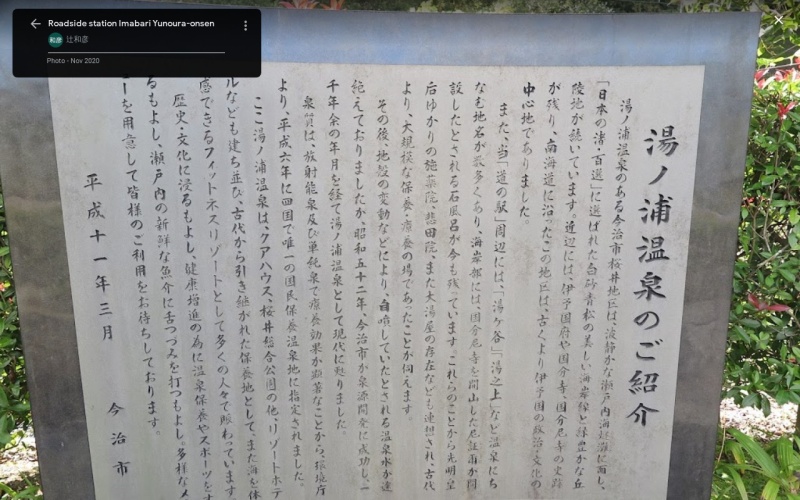 Roadside station Imabari Yunoura-onsen
和彦 辻和彦
Photo - Nov 2020
湯ノ浦温泉のご紹介
湯ノ浦温泉のある今治市桜井地区は、波静かな瀬戸内海
「日本の渚・百選」に選ばれた白砂青松の美しい海岸線と緑豊かな丘
陵地が続いています。近辺には、伊予国府や国分寺、国分尼寺の史跡
が残り、南海道に沿ったこの地区は、古くより伊予国の政治・文化の
中心地でありました。
また、当「道の駅」周辺には、「湯ヶ谷」「湯之上」など温泉にち
なむ地名が数多くあり、海岸部には、国分尼寺を開山した尼証爾が開
設したとされる石風呂が今も残っています。これらのことから光明皇
后ゆかりの施薬院、悲田院、また大湯屋の存在なども連想され、古代
より、大規模な保養・療養の場であったことが伺えます。
その後、地殻の変動などにより、自噴していたとされる温泉水が途
絶えておりましたが、昭和五十二年、今治市が泉源開発に成功し、一
千年余の年月を経て湯ノ浦温泉として現代に甦りました。
泉質は、放射能泉及び単純泉で療養効果が顕著なことから、環境庁
より、平成六年に四国で唯一の国民保養温泉地に指定されました。
ここ湯ノ浦温泉は、クアハウス、桜井総合公園の他、リゾートホテ
ルなども建ち並び、古代から引き継がれた保養地として、また海を体
感できるフィットネスリゾートとして多くの人々で賑わっています
歴史・文化に浸るもよし、健康増進の為に温泉保養やスポーツをす
るもよし、瀬戸内の新鮮な魚介に舌つづみを打つもよし。多様なメ
ーを用意して皆様のご利用をお待ちしております。
平成十一年三月
今治市